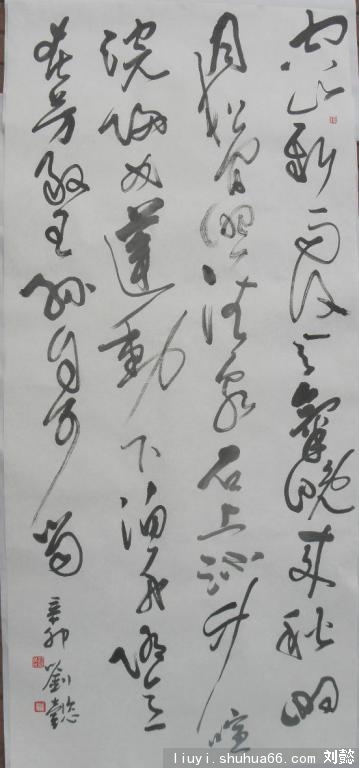 空山新雨後天氣晚来秋明
月松間照清泉石上流竹喧
浣歸女蓮動下渔舟随意
春芳歇王孫自可留
辛卯 劉懿
liuyi.shuhua66.com 刘懿